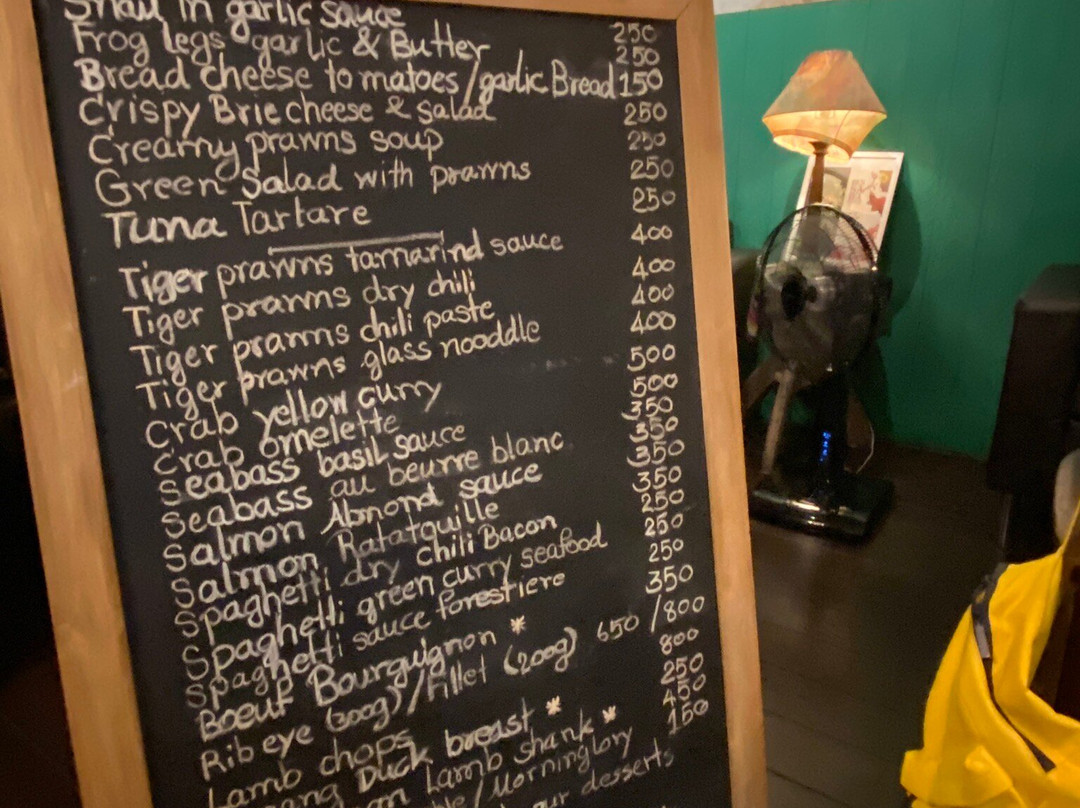 Snail in garlic sauce 250
Frog legs garlic & Butter 250
Bread cheese tomatoes/garlic Bread 150
Crispy Brie cheese & salad 250
Creamy prawns soup 250
Green Salad with prawns 250
Tuna Tartare 250
Tiger prawns tamarind sauce 400
Tiger prawns dry chili 400
Tiger prawns chili paste 400
Tiger prawns glass nooddle 400
Crab yellow curry 500
Crab omelette 500
Seabass basil sauce 350
Seabass au beurre blanc 350
Salmon Almond sauce 350
Salmon Ratatouille 350
Spaghetti dry chili Bacon 250
Spaghetti green curry seafood 250
Spaghetti sauce forestiere 250
Boeuf Bourguignon * 350
Rib eye (300g)/fillet (200g) 650/800
Lamb chops 800
Duck breast * 250
Lamb shank * 450
/Morning glory 150
our desserts